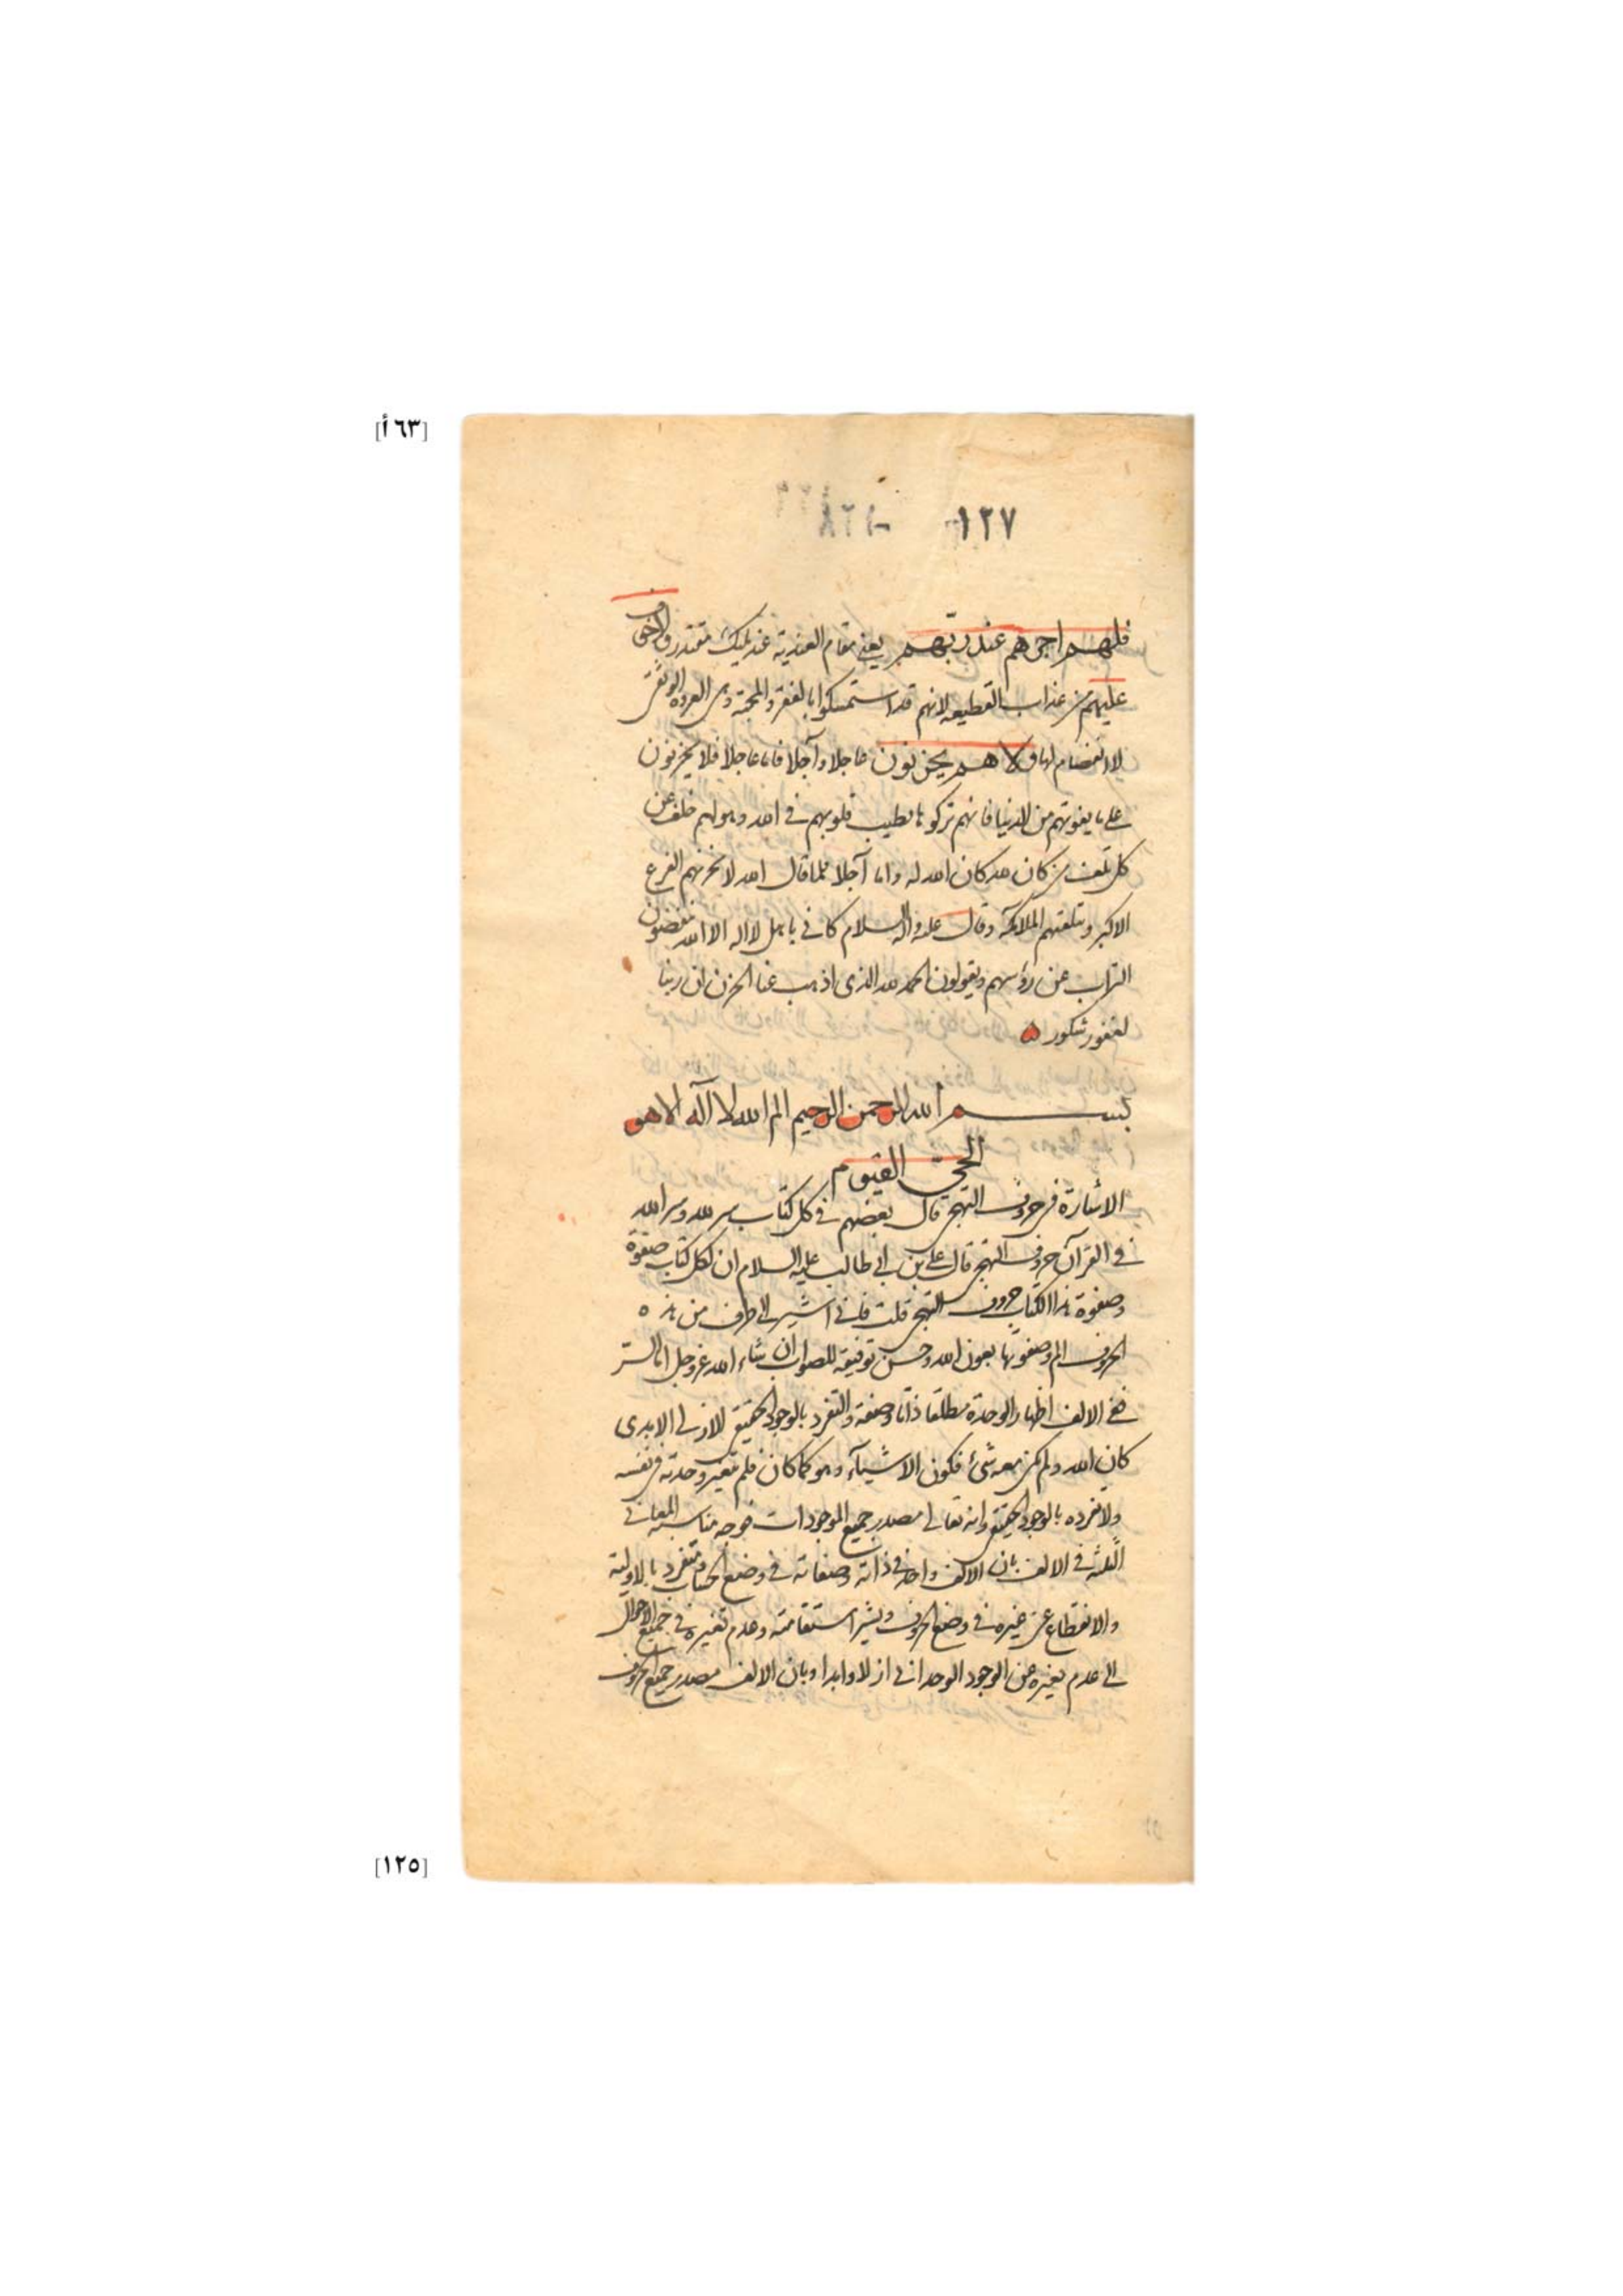 [٦٣أ]
١٢٧
فلهم اجرهم عند ربّهم يعنى مقام العندية عند مليك مقتدر ولا خوف
عليهم من عذاب القطيعه لانهم قد استمسكوا بالفقر والمحبة وهى العروة الوثقى
لا انفصام لها ولا هم يحزنون عاجلا وآجلا فاما عاجلا فلا يحزنون
على ما يفوتهم من الدنيا فانهم تركوها بطيب قلوبهم فى الله وهو لهم خلف عن
كل تلف من كان لله كان الله له واما آجلا فلما قال الله لا يحزنهم الفزع
الاكبر وتتلقيهم الملائكة وقال عليه السلام كانى باهل لا اله الا الله ينفضون
التراب عن رؤسهم ويقولون الحمد لله الذى اذهب عنا الحزن ان ربنا
لغفور شكور
بسم الله الرحمن الرحيم الم الله لا آله الا هو
الحىّ القيّوم
الاشارة فى حروف التهجى قال بعضهم فى كل كتاب سر لله وسر الله
فى القرآن حروف التهجى قال على بن ابى طالب عليه السلام ان لكل كتاب صفوة
وصفوة هذا الكتاب حروف التهجى قلت فانى اشير الى طرف من هذه
الحروف الم وصفوتها بعون الله وحسن توفيقه للصواب ان شاء الله عز وجل اما السّر
فى الالف اظهار الوحدة مطلقا ذاتا وصفة والتفرد بالوجود الحقيقى الازلى الابدى
كان الله ولم يكن معه شئ فكون الاشيآء وهو كما كان فلم تتغير وحدته فى نفسه
ولا تفرده بالوجود الحقيقى وانه تعالى مصدر جميع الموجودات فوجه مناسبة المعانى
الثلثة فى الالف بان الالف واحد فى ذاته وصفاته فى وضع الحساب ومتفرد بالاولية
والانقطاع عن غيره فى وضع الحروف ويشير استقامته وعدم تغيره فى جميع الاحوال
الى عدم تغيره عن الوجود الوحدانى ازلا وابدا وبان الالف مصدر جميع الحروف
[١٢٥]